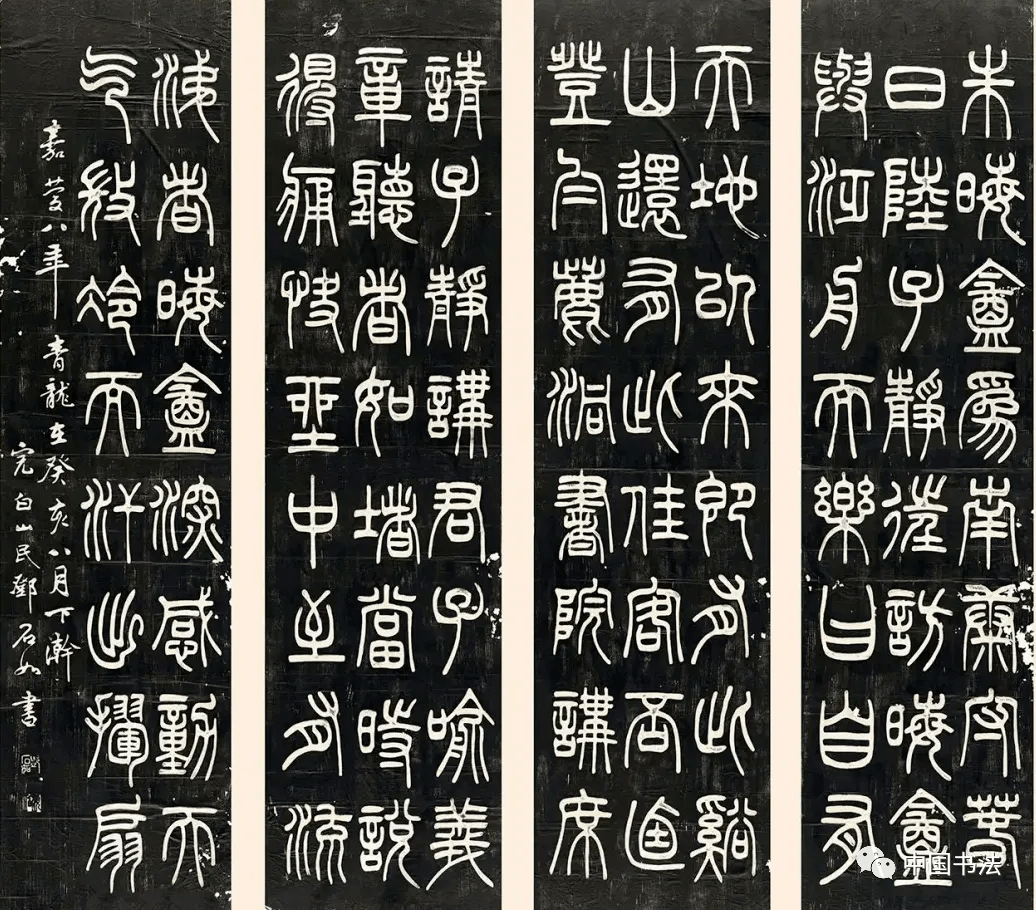 朱晦盦爲南康守春
日陸子靜往訪晦盦
與泛舟而樂曰自有
天地以來即有此谿
山還有此佳客否因
登白鹿洞書院講席
請子靜講君子喻義
章聽者如堵當時說
得痛快坐中至有流
涕者晦盦深感動天
气冷而汗出揮扇
嘉慶八年青龍在癸亥八月下澣
完白山民鄧石如書
中国书法